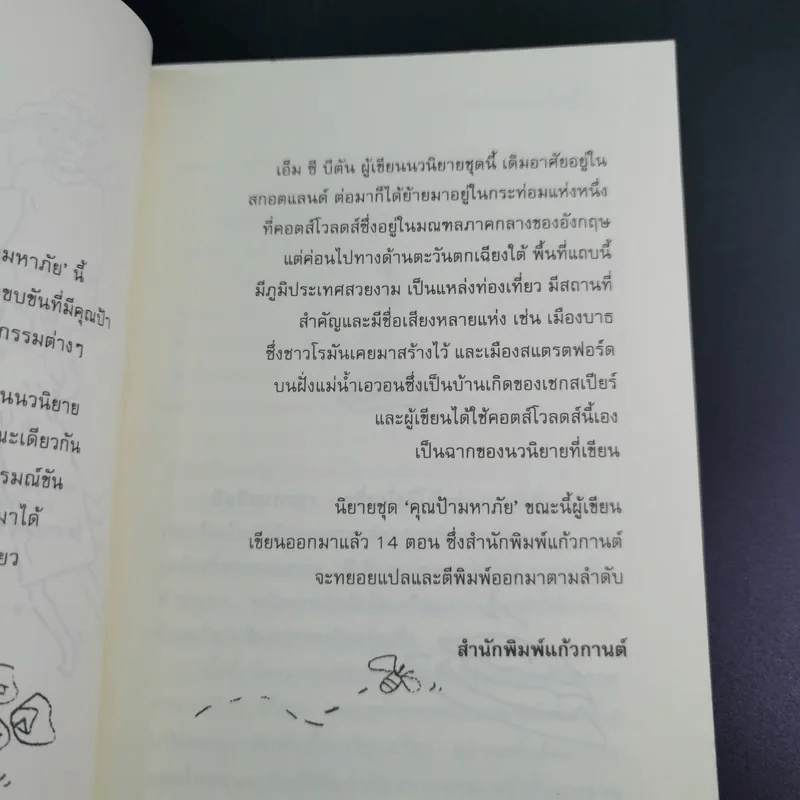 มหาภัย' นี้
ขบขันที่มีคุณป้า
กรรมต่างๆ
นนวนิยาย
ณะเดียวกัน
รมณ์ขัน
มาได้
ยว
เอ็ม ซี บีตัน ผู้เขียนนวนิยายชุดนี้ เดิมอาศัยอยู่ใน
สกอตแลนด์ ต่อมาก็ได้ย้ายมาอยู่ในกระท่อมแห่งหนึ่ง
ที่คอตส์โวลดส์ซึ่งอยู่ในมณฑลภาคกลางของอังกฤษ
แต่ค่อนไปทางด้านตะวันตกเฉียงใต้ พื้นที่แถบนี้
มีภูมิประเทศสวยงาม เป็นแหล่งท่องเที่ยว มีสถานที่
สำคัญและมีชื่อเสียงหลายแห่ง เช่น เมืองบาธ
ซึ่งชาวโรมันเคยมาสร้างไว้ และเมืองสแตรตฟอร์ด
บนฝั่งแม่น้ำเอวอนซึ่งเป็นบ้านเกิดของเชกสเปียร์
และผู้เขียนได้ใช้คอตส์โวลดส์นี้เอง
เป็นฉากของนวนิยายที่เขียน
นิยายชุด 'คุณป้ามหาภัย' ขณะนี้ผู้เขียน
เขียนออกมาแล้ว 14 ตอน ซึ่งสำนักพิมพ์แก้วกานต์
จะทยอยแปลและตีพิมพ์ออกมาตามลำดับ
สำนักพิมพ์แก้วกานต์